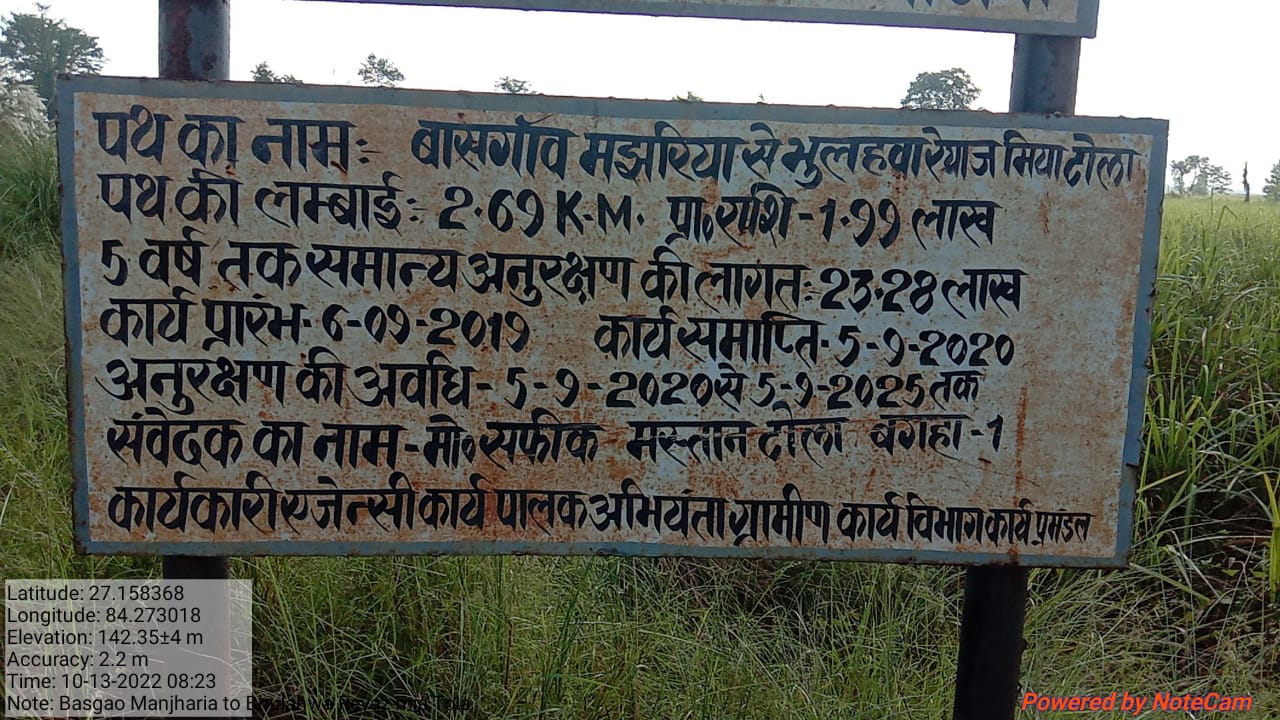 पथ का नाम:- बासगाँव मझरिया से भुलहवा रेयाज मिया टोला
पथ की लम्बाई:- 2.69 K.M. प्रा॰ राशि - 1.99 लाख
5 वर्ष तक समान्य अनुरक्षण की लागत:- 23.28 लाख
कार्य प्रारंभ- 6-09-2019 कार्य समाप्ति- 5-9-2020
अनुरक्षण की अवधि - 5-9-2020 से 5-9-2025 तक
संवेदक का नाम - मो॰ सफीक मस्तान टोला बगहा -1
कार्यकारी एजेन्सी कार्य पालक अभियंता ग्रामीण कार्य विभाग कार्य प्रमंडल
Latitude: 27.158368
Longitude: 84.273018
Elevation: 142.35±4 m
Accuracy: 2.2 m
Time: 10-13-2022 08:23
Note: Basgao Manjharia to
Powered by NoteCam